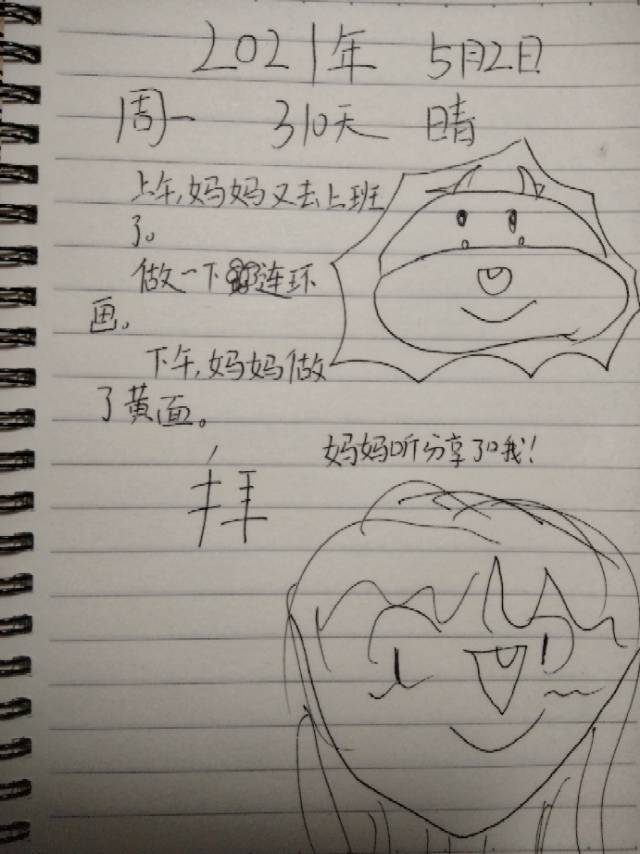 2021年 5月2日
周一 310天 晴
上午,妈妈又去上班
了。
做一下连环
画。
下午,妈妈做
了黄面。
妈妈听分享了我!
拜